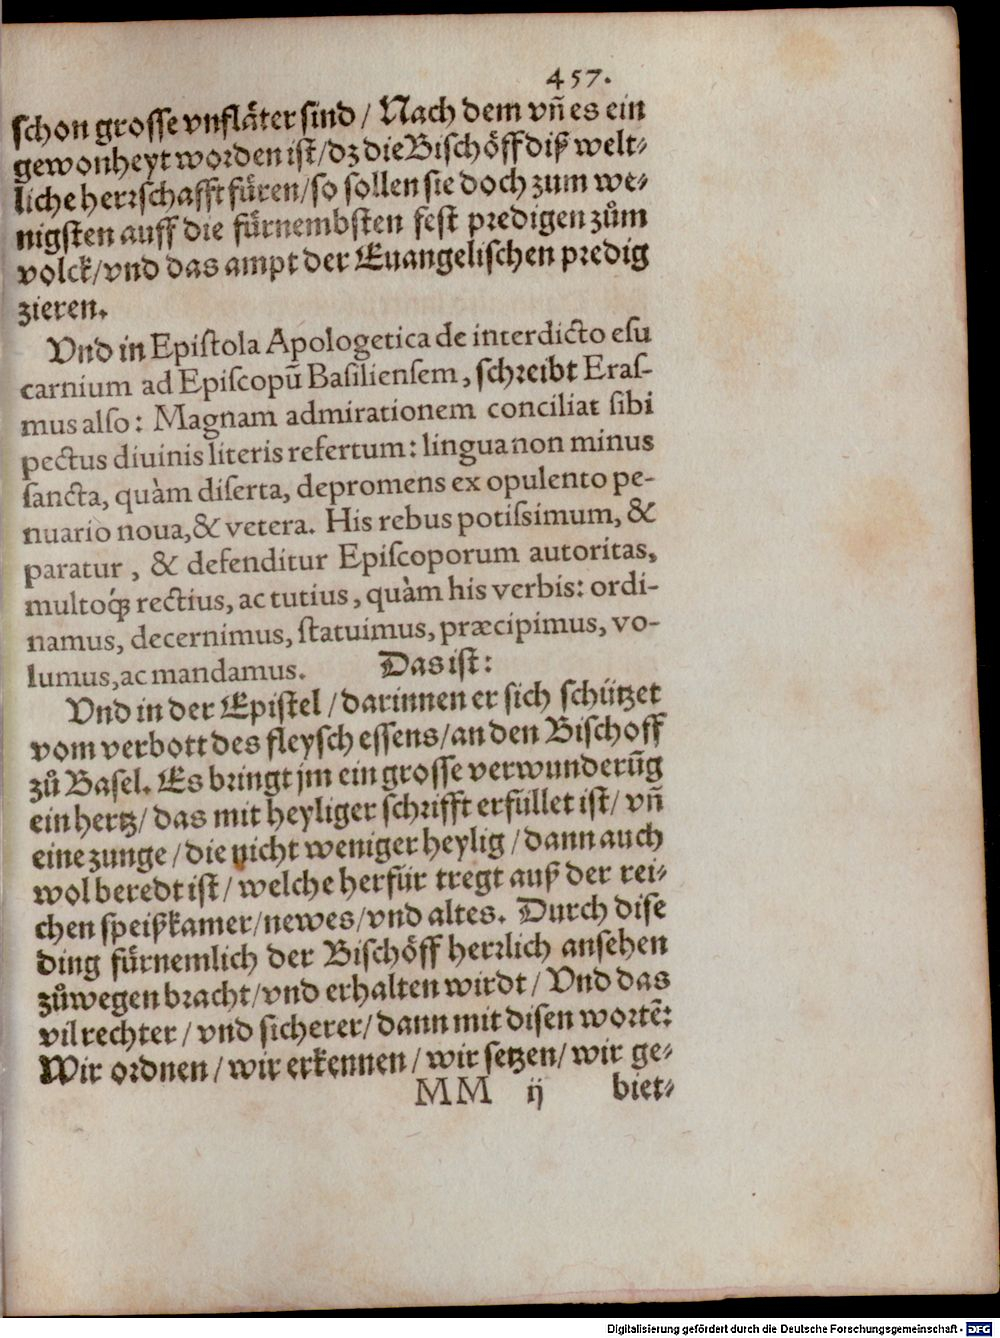 457.
schon grosse vnfläter sind / Nach dem vñ es ein
gewonheyt worden ist/dz die Bischöff diß welt⸗
liche herꝛschafft füren/so sollen sie doch zum we⸗
nigsten auff die fürnembsten fest pꝛedigen zům
volck/vnd das ampt der Euangelischen pꝛedig
zieren.
Vnd in Epiſtola Apologetica de interdicto eſu
carnium ad Epiſcopū Baſilienſem, schꝛeibt Eraſ-
mus alſo: Magnam admirationem conciliat ſibi
pectus diuinis literis refertum: lingua non minus
ſancta, quàm diſerta, depromens ex opulento pe-
nuario noua, & vetera. His rebus potiſsimum, &
paratur, & defenditur Epiſcoporum autoritas,
multoq́; rectius, ac tutius, quàm his verbis: ordi-
namus, decernimus, ſtatuimus, præcipimus, vo-
lumus, ac mandamus. Das ist:
Vnd in der Epistel / darinnen er sich schützet
vom verbott des fleysch essens/an den Bischoff
zů Basel. Es bꝛingt jm ein grosse verwunderūg
ein hertz/ das mit heyliger schꝛifft erfüllet ist/ vñ
eine zunge / die nicht weniger heylig / dann auch
wol beredt ist / welche herfür tregt auß der rei⸗
chen speißkamer/newes/vnd altes. Durch dise
ding fürnemlich der Bischöff herꝛlich ansehen
zůwegen bꝛacht/vnd erhalten wirdt / Vnd das
vil rechter / vnd sicherer/ dann mit disen woꝛtē:
Wir oꝛdnen / wir erkennen / wir setzen/ wir ge⸗
MM ij biet⸗
Digitalisierung gefördert durch die Deutsche Forschungsgemeinschaft - DFG